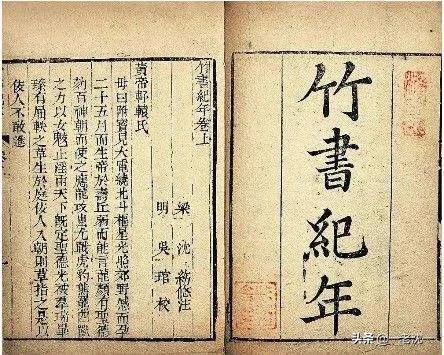 竹書紀年
竹書紀年卷上
梁 沈約修注
明 吳琯校
黃帝軒轅氏
母曰附寶見大電繞北斗樞星光照郊野感而孕
二十五月而生帝於壽丘弱而能言龍顏有聖德
劾百神朝而使之應龍攻蚩尤戰虎豹熊羆四獸
之力以女魃止淫雨天下既定聖德光被羣瑞畢
臻有屈軼之草生於庭佞人入朝則草指之是以
佞人不敢進
头条 @一老沈一